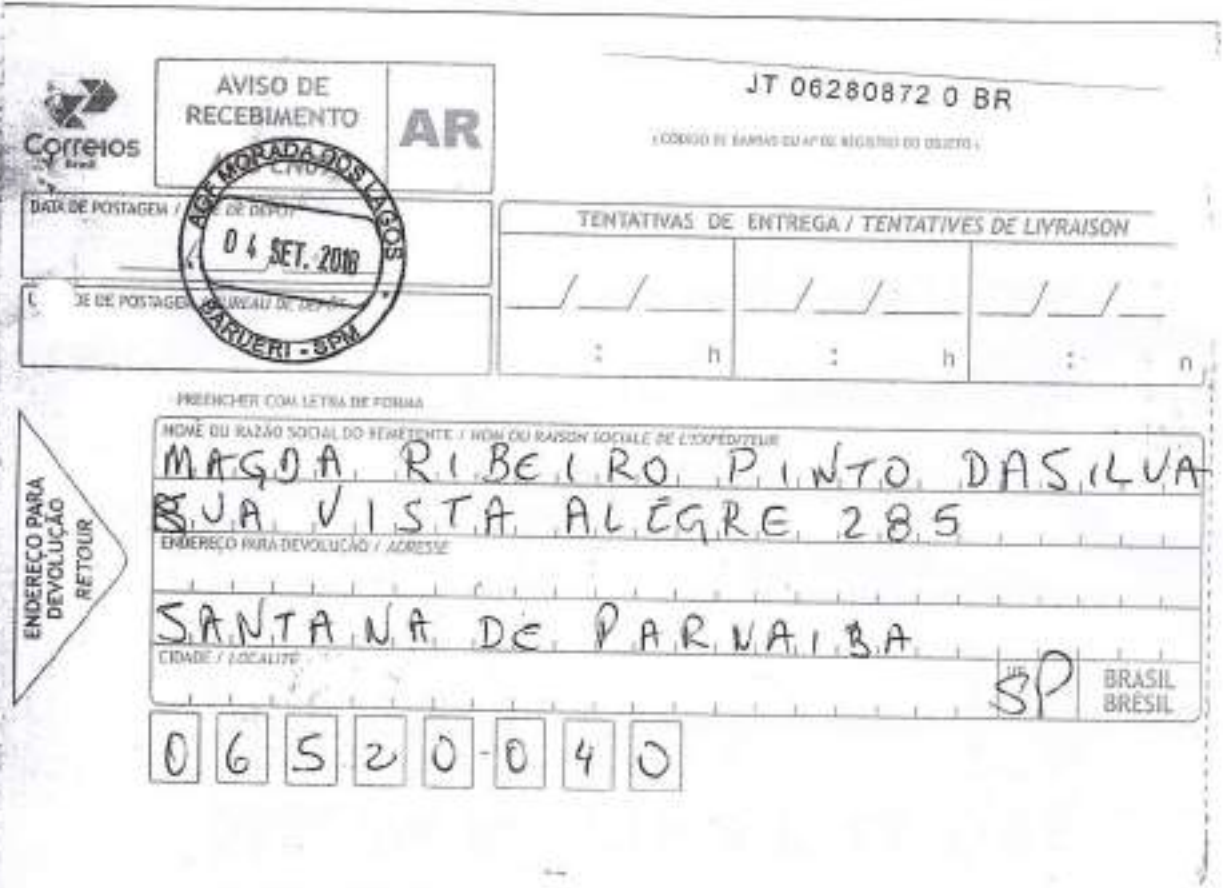 Correios
Brasil
AVISO DE
RECEBIMENTO
AR
JT 06280872 0 BR
( CÓDIGO DE BARRAS OU Nº DE REGISTRO DO OBJETO )
AGF MORADA DOS LAGOS
04 SET. 2018
BARUERI - SPM
DATA DE POSTAGEM / DE DEPÔT
DE DE POSTAGEM / BUREAU DE DEPÔT
TENTATIVAS DE ENTREGA / TENTATIVES DE LIVRAISON
__/__/__ __/__/__ __/__/__
: h : h : h
PREENCHER COM LETRA DE FORMA
ENDEREÇO PARA
DEVOLUÇÃO
RETOUR
NOME OU RAZÃO SOCIAL DO REMETENTE / NOM OU RAISON SOCIALE DE L'EXPÉDITEUR
MAGDA RIBEIRO PINTO DASILVA
RUA VISTA ALEGRE 285
ENDEREÇO PARA DEVOLUÇÃO / ADRESSE
SANTANA DE PARNAIBA
CIDADE / LOCALITÉ
UF
SP
BRASIL
BRÉSIL
06520-040